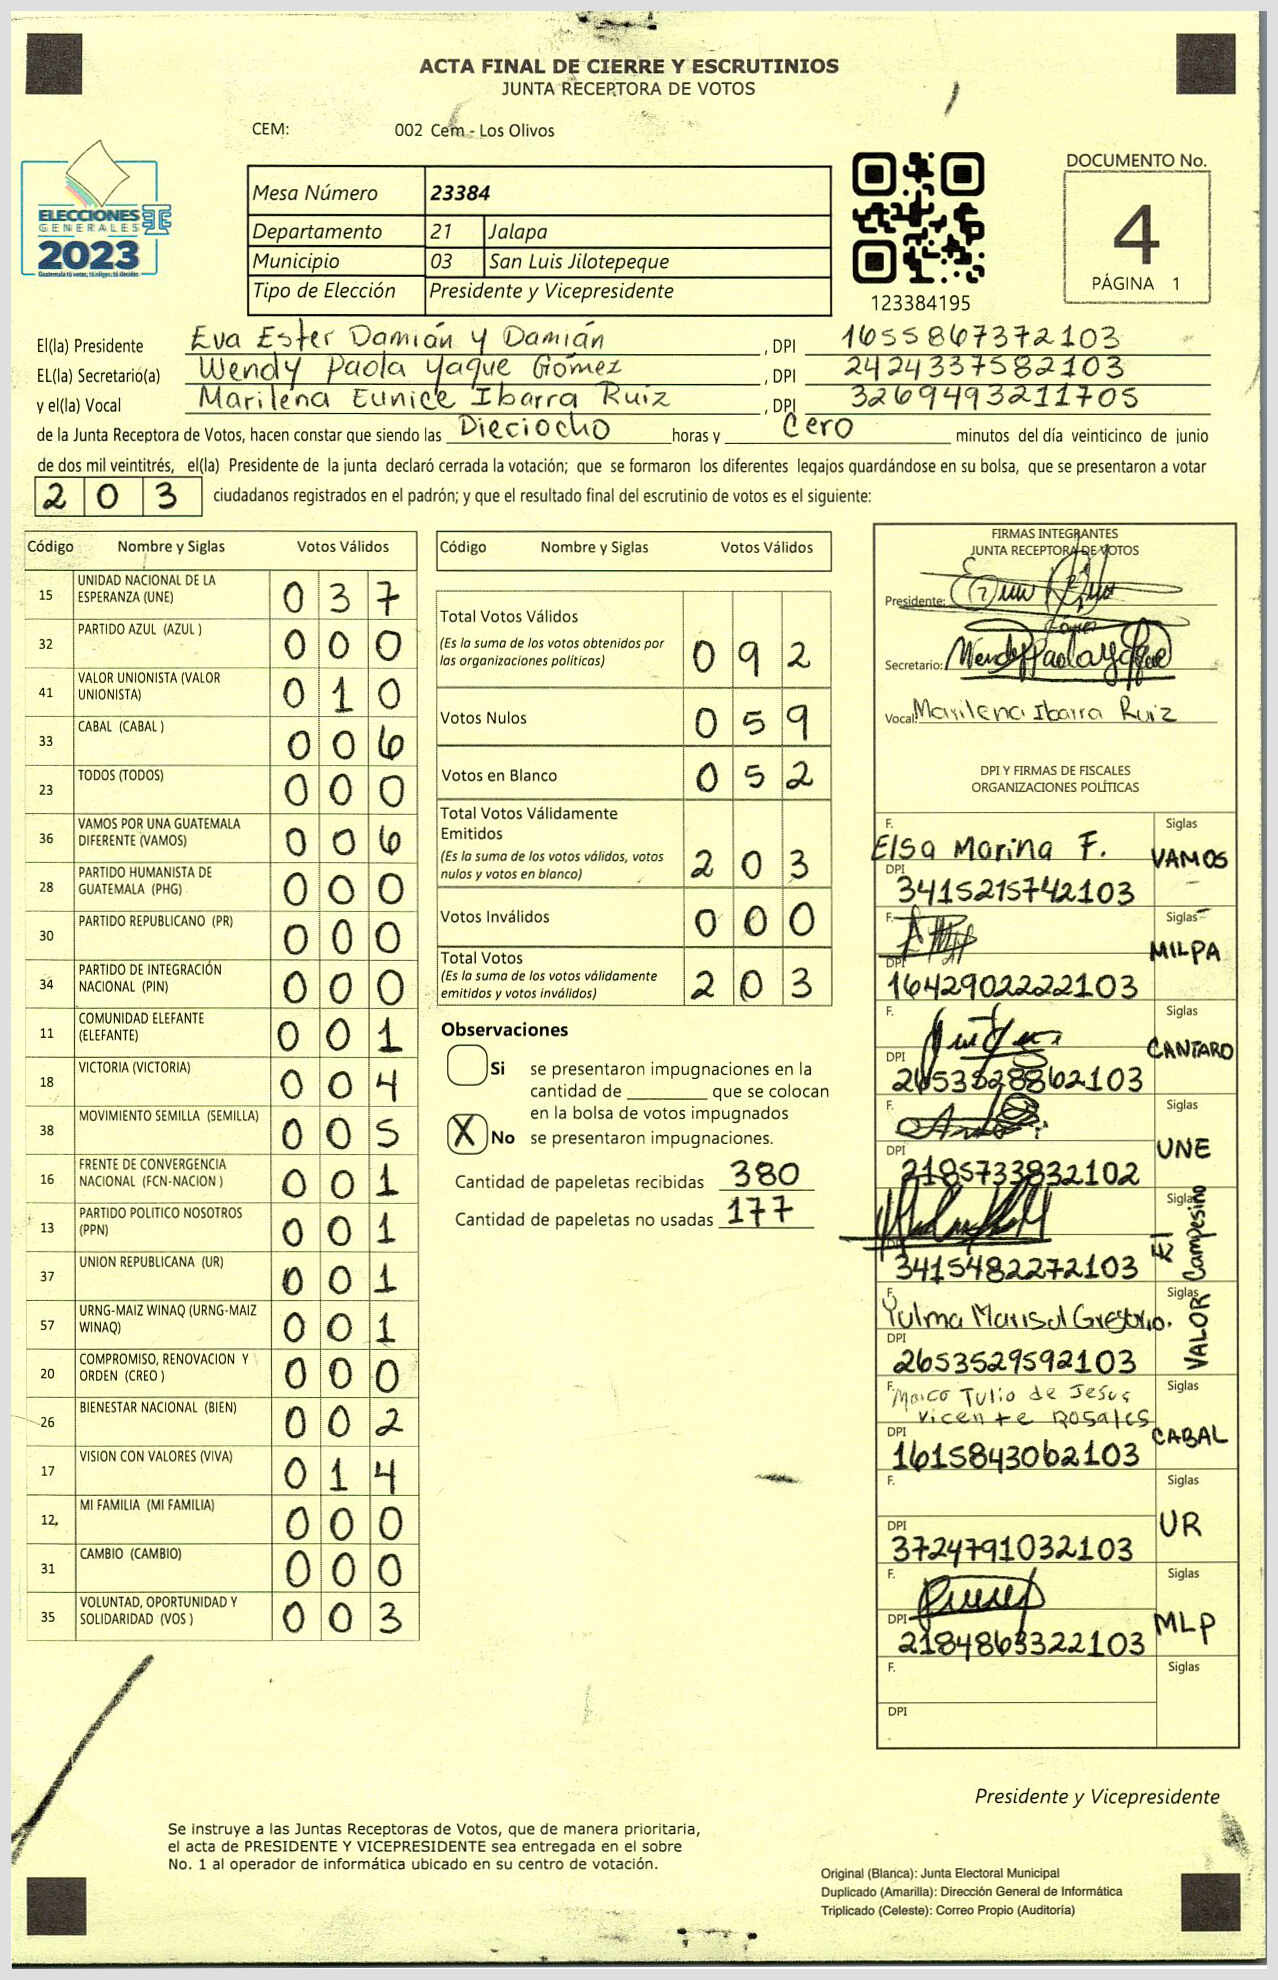 ACTA FINAL DE CIERRE Y ESCRUTINIOS
JUNTA RECEPTORA DE VOTOS
CEM: 002 Cem - Los Olivos
ELECCIONES
GENERALES
2023
Guatemala tú votas, tú eliges, tú decides
Mesa Número 23384
Departamento 21 Jalapa
Municipio 03 San Luis Jilotepeque
Tipo de Elección Presidente y Vicepresidente
123384195
DOCUMENTO No.
4
PÁGINA 1
El(la) Presidente Eva Ester Damián y Damián , DPI 1655867372103
EL(la) Secretario(a) Wendy Paola Yaque Gómez , DPI 2424337582103
y el(la) Vocal Marilena Eunice Ibarra Ruiz , DPI 3269493211705
de la Junta Receptora de Votos, hacen constar que siendo las Dieciocho horas y Cero minutos del día veinticinco de junio
de dos mil veintitrés, el(la) Presidente de la junta declaró cerrada la votación; que se formaron los diferentes legajos guardándose en su bolsa, que se presentaron a votar
2 0 3 ciudadanos registrados en el padrón; y que el resultado final del escrutinio de votos es el siguiente:
Código Nombre y Siglas Votos Válidos
15 UNIDAD NACIONAL DE LA ESPERANZA (UNE) 0 3 7
32 PARTIDO AZUL (AZUL ) 0 0 0
41 VALOR UNIONISTA (VALOR UNIONISTA) 0 1 0
33 CABAL (CABAL ) 0 0 6
23 TODOS (TODOS) 0 0 0
36 VAMOS POR UNA GUATEMALA DIFERENTE (VAMOS) 0 0 6
28 PARTIDO HUMANISTA DE GUATEMALA (PHG) 0 0 0
30 PARTIDO REPUBLICANO (PR) 0 0 0
34 PARTIDO DE INTEGRACIÓN NACIONAL (PIN) 0 0 0
11 COMUNIDAD ELEFANTE (ELEFANTE) 0 0 1
18 VICTORIA (VICTORIA) 0 0 4
38 MOVIMIENTO SEMILLA (SEMILLA) 0 0 5
16 FRENTE DE CONVERGENCIA NACIONAL (FCN-NACION ) 0 0 1
13 PARTIDO POLITICO NOSOTROS (PPN) 0 0 1
37 UNION REPUBLICANA (UR) 0 0 1
57 URNG-MAIZ WINAQ (URNG-MAIZ WINAQ) 0 0 1
20 COMPROMISO, RENOVACION Y ORDEN (CREO ) 0 0 0
26 BIENESTAR NACIONAL (BIEN) 0 0 2
17 VISION CON VALORES (VIVA) 0 1 4
12 MI FAMILIA (MI FAMILIA) 0 0 0
31 CAMBIO (CAMBIO) 0 0 0
35 VOLUNTAD, OPORTUNIDAD Y SOLIDARIDAD (VOS ) 0 0 3
Código Nombre y Siglas Votos Válidos
Total Votos Válidos
(Es la suma de los votos obtenidos por
las organizaciones políticas) 0 9 2
Votos Nulos 0 5 9
Votos en Blanco 0 5 2
Total Votos Válidamente
Emitidos
(Es la suma de los votos válidos, votos
nulos y votos en blanco) 2 0 3
Votos Inválidos 0 0 0
Total Votos
(Es la suma de los votos válidamente
emitidos y votos inválidos) 2 0 3
Observaciones
Si se presentaron impugnaciones en la
cantidad de ________ que se colocan
en la bolsa de votos impugnados
X No se presentaron impugnaciones.
Cantidad de papeletas recibidas 380
Cantidad de papeletas no usadas 177
FIRMAS INTEGRANTES
JUNTA RECEPTORA DE VOTOS
Presidente:
Secretario: Wendy Paola Yaque
Vocal: Marilena Ibarra Ruiz
DPI Y FIRMAS DE FISCALES
ORGANIZACIONES POLÍTICAS
F. Elsa Marina F. Siglas VAMOS
DPI 3415215742103
F. Siglas MILPA
DPI 1642902222103
F. Siglas CANTARO
DPI 2653528862103
F. Siglas UNE
DPI 2185733832102
Siglas El Campesino
DPI 3415482272103
F. Yulma Marisol Gregorio. Siglas VALOR
DPI 2653529592103
F. Marco Tulio de Jesus Vicente Rosales Siglas CABAL
DPI 1615843062103
F. Siglas UR
DPI 3724791032103
F. Siglas MLP
DPI 2184863322103
F. Siglas
DPI
Presidente y Vicepresidente
Se instruye a las Juntas Receptoras de Votos, que de manera prioritaria,
el acta de PRESIDENTE Y VICEPRESIDENTE sea entregada en el sobre
No. 1 al operador de informática ubicado en su centro de votación.
Original (Blanca): Junta Electoral Municipal
Duplicado (Amarilla): Dirección General de Informática
Triplicado (Celeste): Correo Propio (Auditoría)